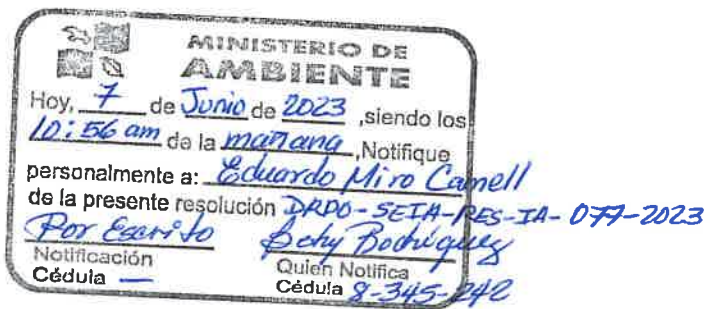 MINISTERIO DE
AMBIENTE
Hoy, 7 de Junio de 2023 ,siendo los
10:56 am de la mañana ,Notifique
personalmente a: Eduardo Miro Camell
de la presente resolución DRPO-SEIA-RES-IA-077-2023
Por Escrito Bethy Rodriguez
Notificación Quien Notifica
Cédula — Cédula 8-345-242